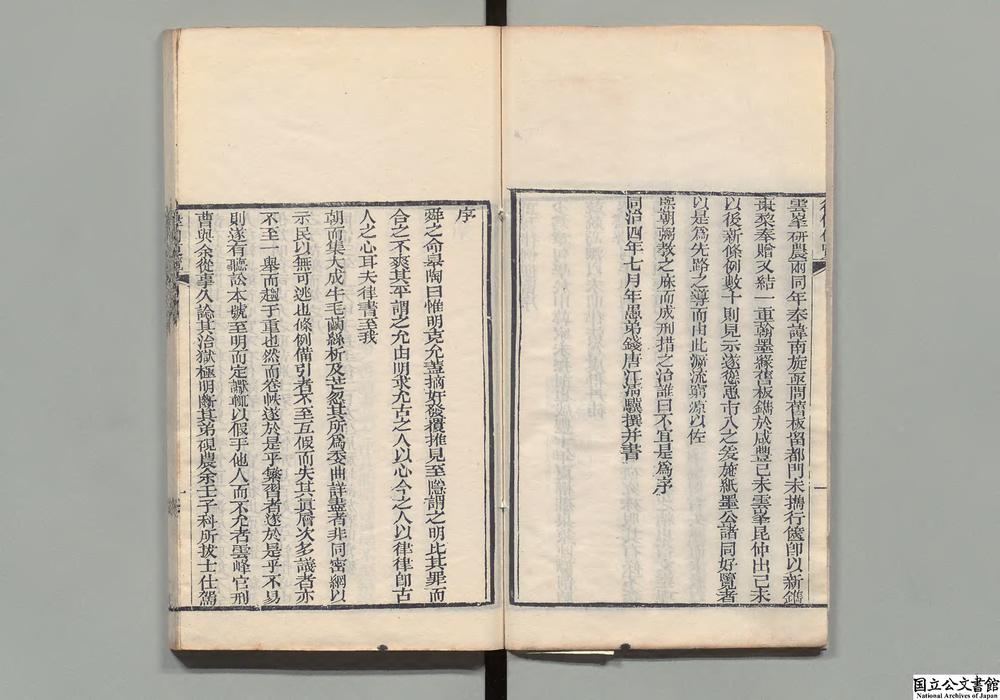 雲峯研農兩同年奉諱南旋亟問舊板留都門未攜行篋卽以新鐫
棗棃奉贈又結一重翰墨緣舊板鐫於咸豐己未雲峯昆仲出己未
以後新條例數十則見示遂慫恿市人之爰施紙墨公諸同好覽者
以是爲先路之導而由此溯流窮源以佐
熙朝弼教之庥而成刑措之治誰曰不宜是爲序
同治四年七月年愚弟錢唐江清驥撰并書
序
舜之命皋陶曰惟明克允蓋摘奸發覆推見至隱謂之明比其罪而
合之不爽其平謂之允由明求允古之人以心今之人以律律卽古
人之心耳夫律書至我
朝而集大成牛毛繭絲析及芒忽其所爲委曲詳盡者非同密網以
示民以無可逃也條例備引者不至互假而失其眞層次多議者亦
不至一舉而趨于重也然而卷帙遂於是乎繁習者遂於是乎不易
則遂有聽訟本號至明而定讞輒以假手他人而不允者雲峰官刑
曹與余從事久諗其治獄極明斷其弟硯農余壬子科所拔士仕駕
国立公文書館
National Archives of Japan